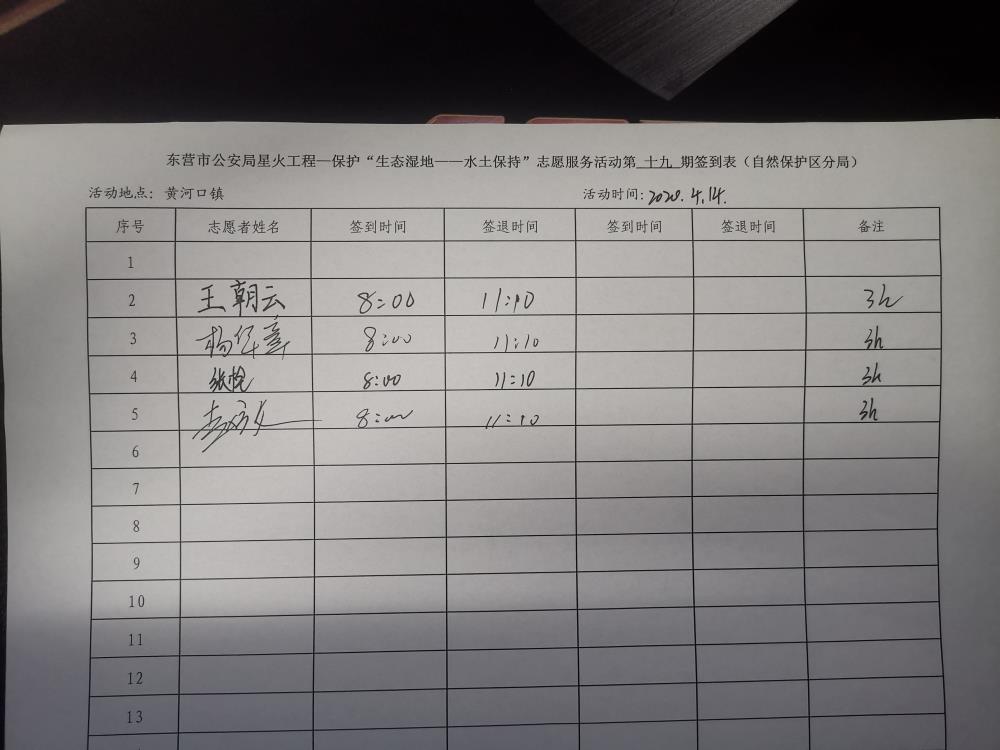 东营市公安局星火工程—保护“生态湿地——水土保持”志愿服务活动第 十九 期签到表（自然保护区分局）
活动地点：黄河口镇 活动时间：2020.4.14.
序号 志愿者姓名 签到时间 签退时间 签到时间 签退时间 备注
1
2 王朝云 8:00 11:10 3h
3 8:00 11:10 3h
4 8:00 11:10 3h
5 8:00 11:10 3h
6
7
8
9
10
11
12
13